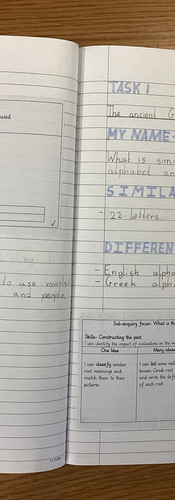 used
✓
to use vowels
and people
TASK 1
The ancient G
MY NAME-
What is sim
alphabet an
SIMILA
- 22 letters.
DIFFEREN
- English alpha
- Greek alpha
Sub-enquiry focus: What is th
Skills- Constructing the past
I can identify the impact of civilisations on the w
One Idea
Many ideas
I can classify similar
root meanings and
match them to their
pictures.
I can list some well
known Greek root
and write the defin
of each root.